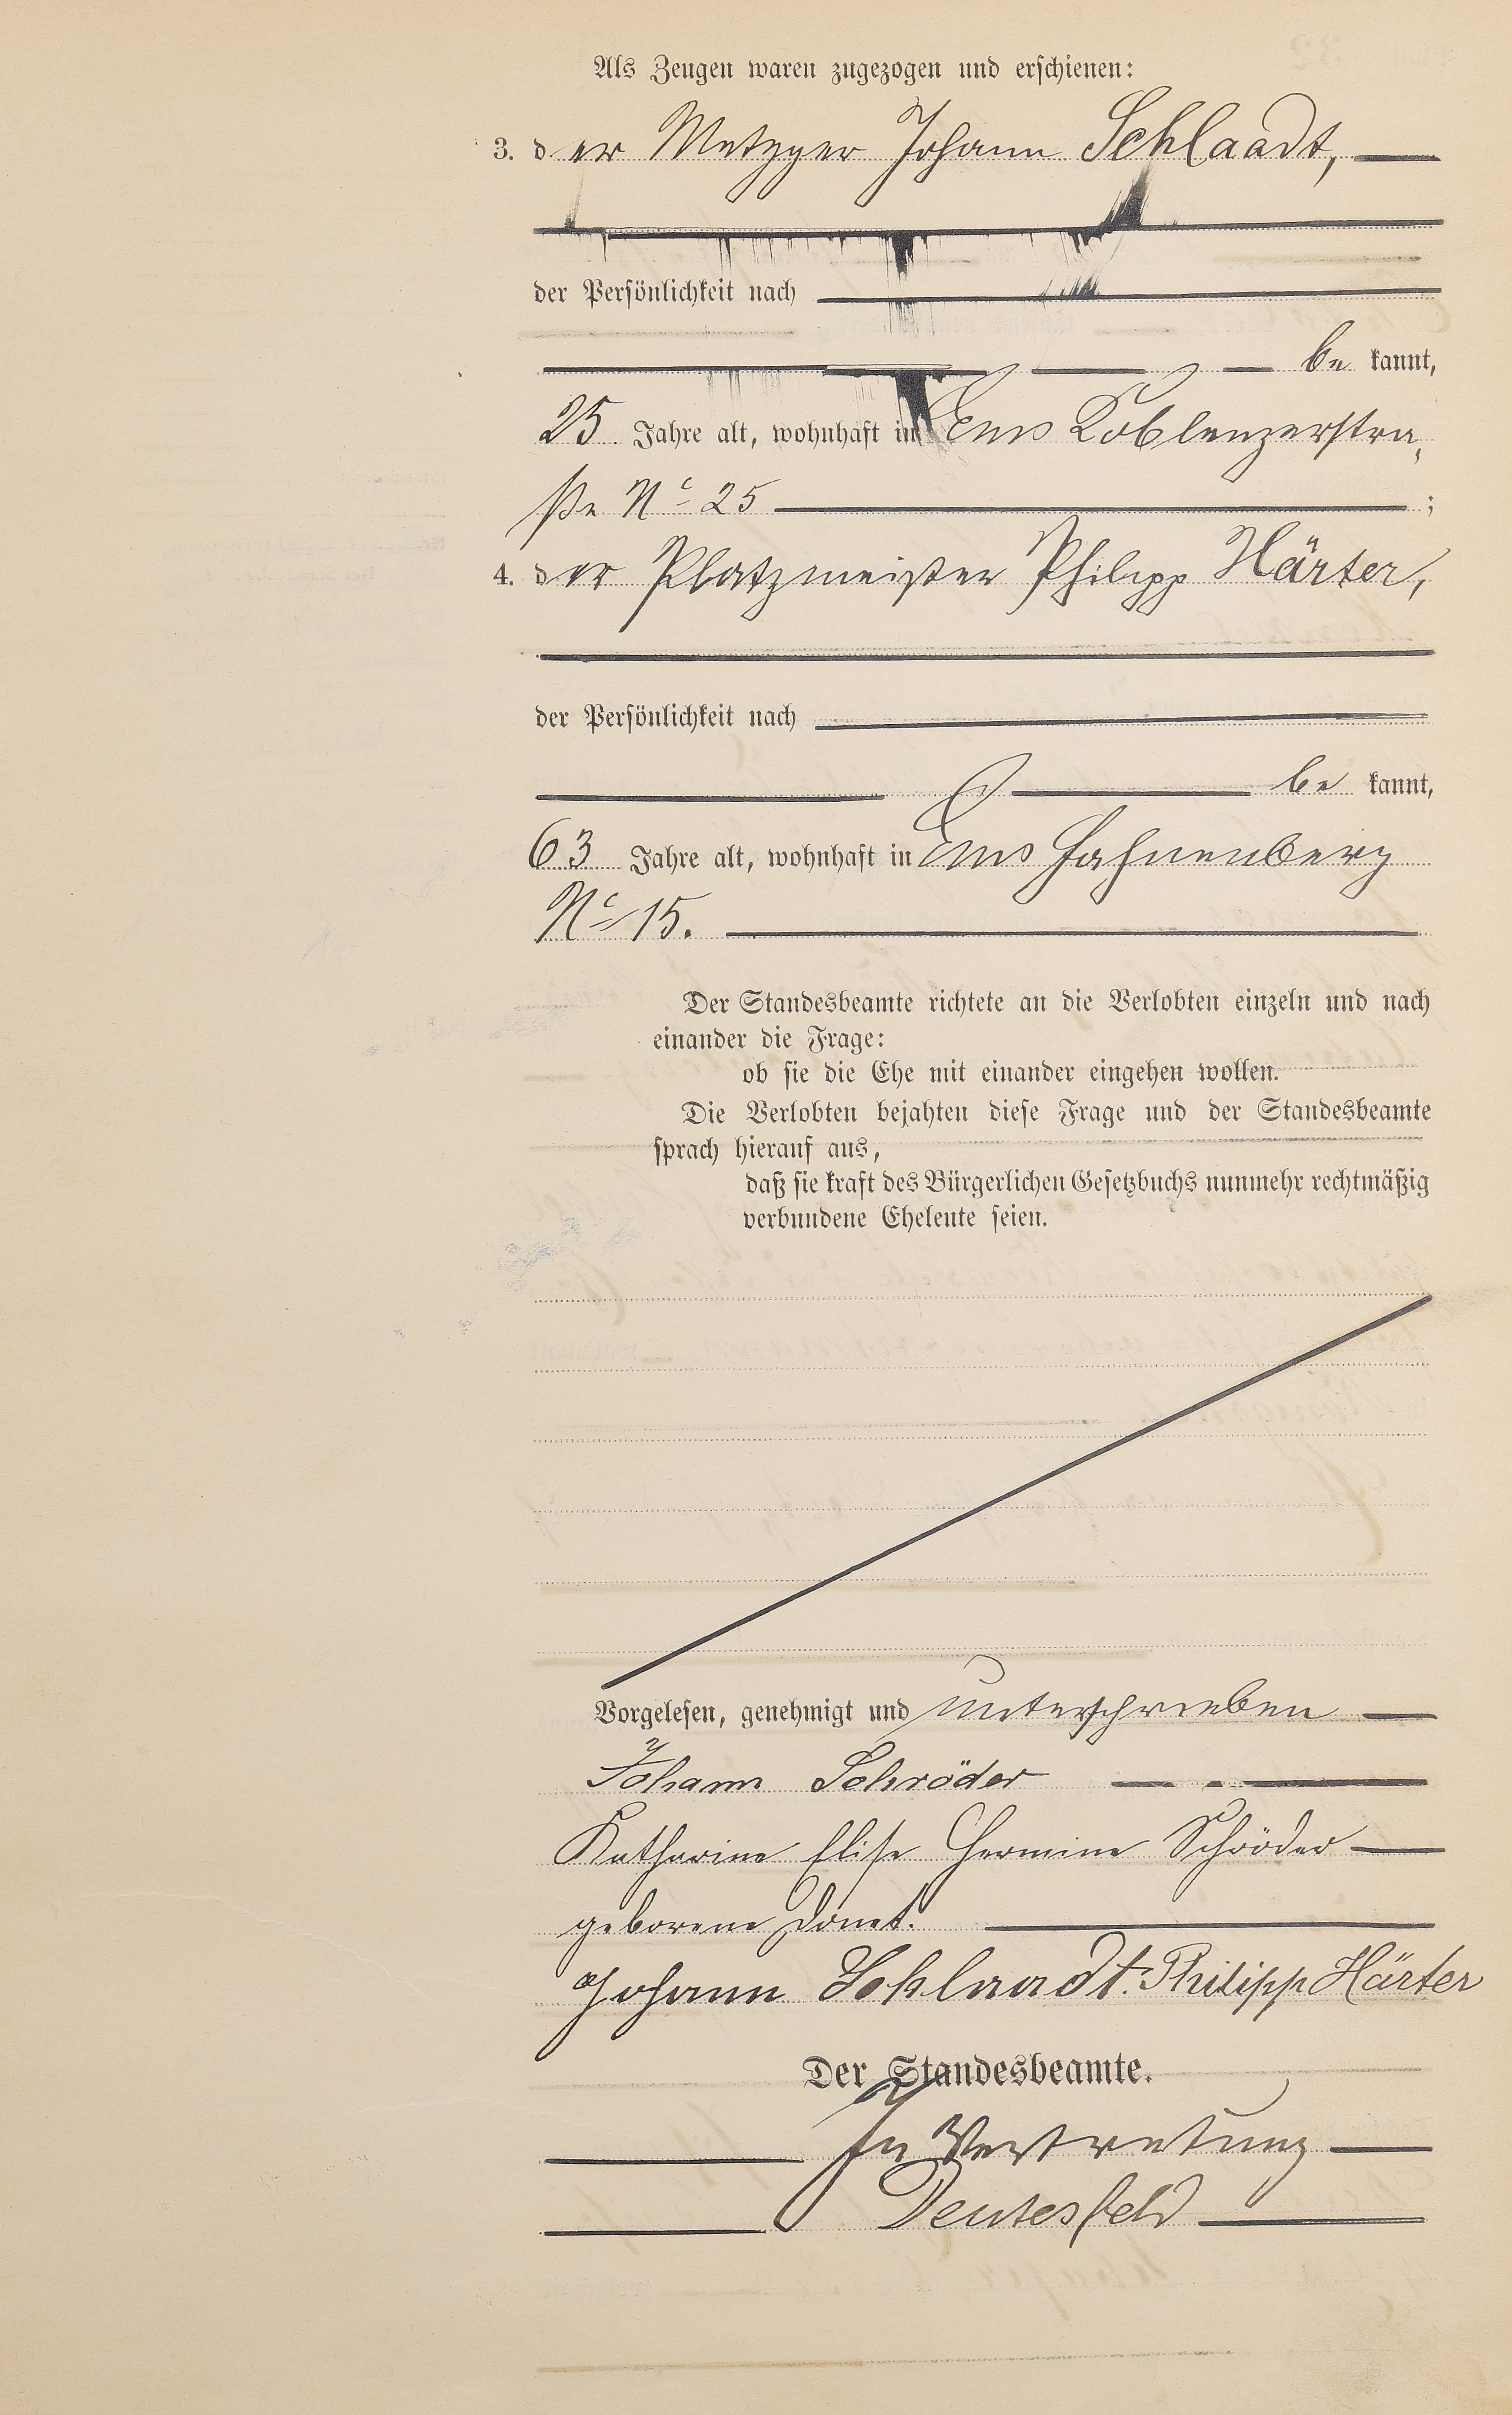 Als Zeugen waren zugezogen und erschienen:
3. der Metzger Johann Schlaadt,
der Persönlichkeit nach
be kannt,
25 Jahre alt, wohnhaft in Ems Koblenzerstra„
ße No 25 ;
4. der Platzmeister Philipp Härter,
der Persönlichkeit nach
be kannt,
63 Jahre alt, wohnhaft in Ems Hahnenberg
No 15.
Der Standesbeamte richtete an die Verlobten einzeln und nach
einander die Frage:
ob sie die Ehe mit einander eingehen wollen.
Die Verlobten bejahten diese Frage und der Standesbeamte
sprach hierauf aus,
daß sie kraft des Bürgerlichen Gesetzbuchs nunmehr rechtmäßig
verbundene Eheleute seien.
Vorgelesen, genehmigt und unterschrieben
Johann Schröder
Katharine Elise Hermine Schröder
geborene Donet.
Johann Schlaadt. Philipp Härter
Der Standesbeamte.
In Vertretung
Deutesfeld